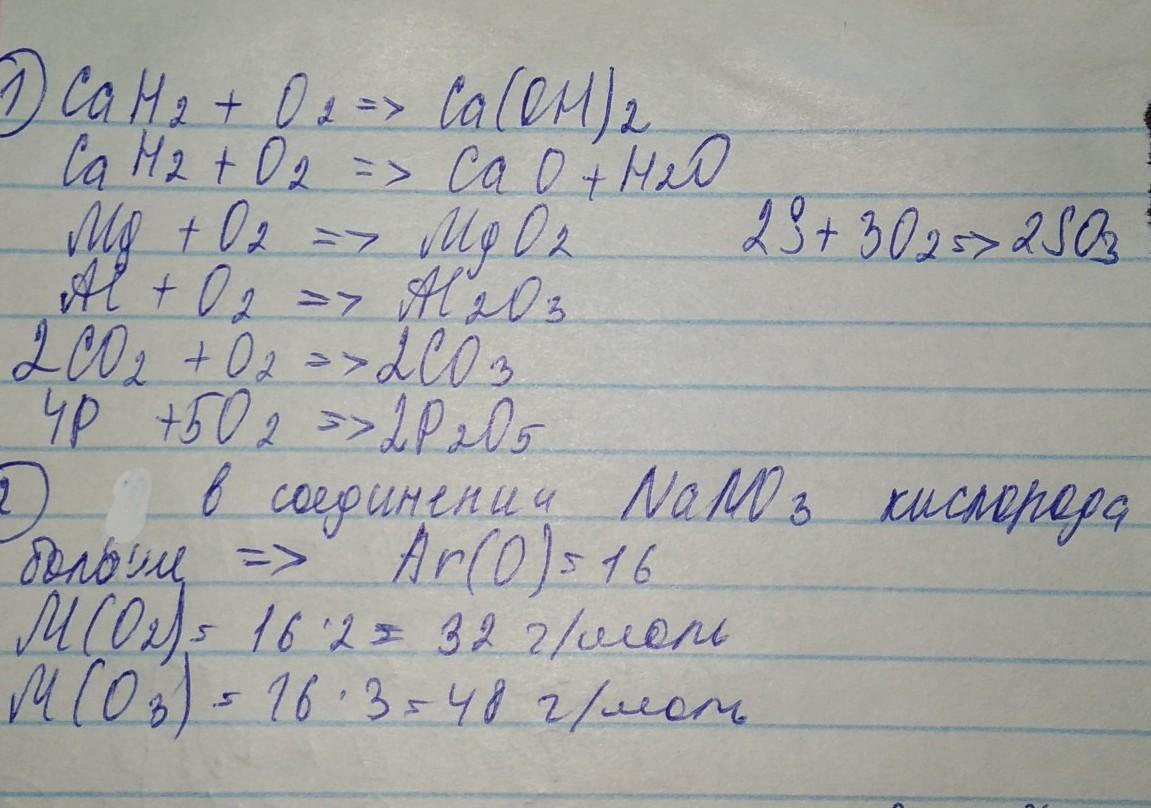 1) CaH2 + O2 => Ca(OH)2
CaH2 + O2 => CaO + H2O
Mg + O2 => MgO2 2S + 3O2 => 2SO3
Al + O2 => Al2O3
2CO2 + O2 => 2CO3
4P + 5O2 => 2P2O5
2) в соединении NaNO3 кислорода
больше => Ar(O) = 16
M(O2) = 16·2 = 32 г/моль
M(O3) = 16·3 = 48 г/моль